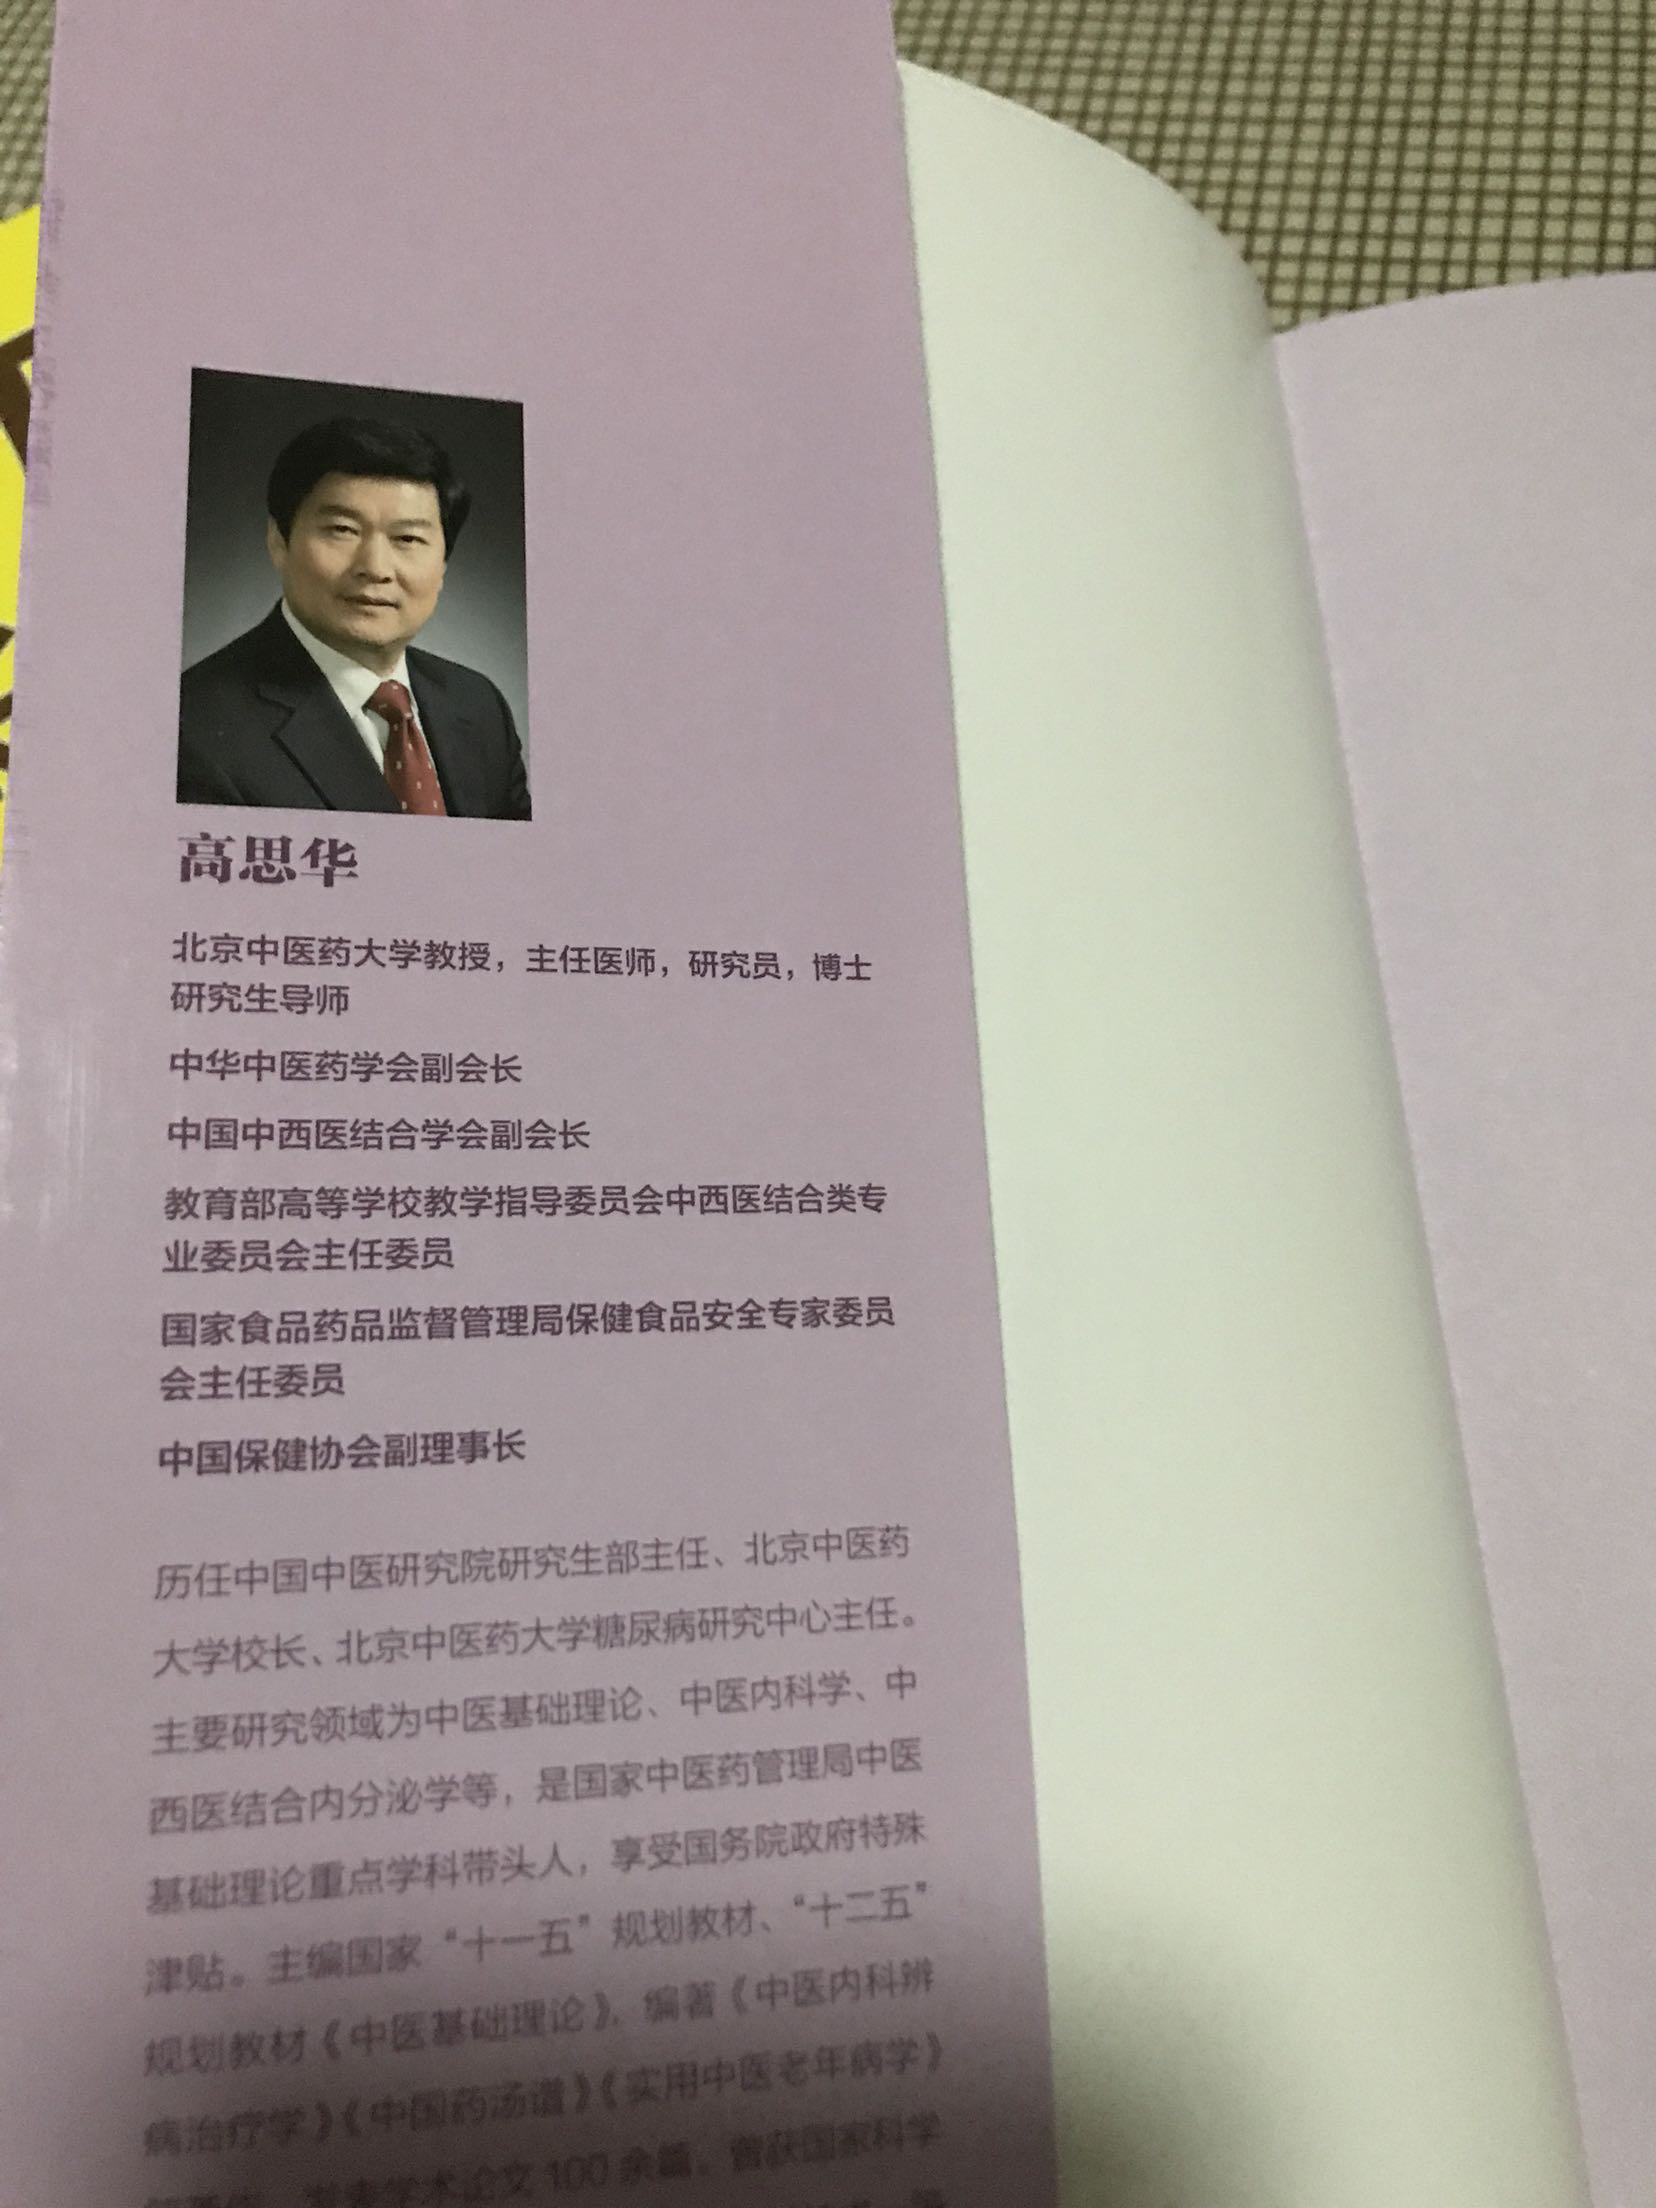 高思华
北京中医药大学教授，主任医师，研究员，博士
研究生导师
中华中医药学会副会长
中国中西医结合学会副会长
教育部高等学校教学指导委员会中西医结合类专
业委员会主任委员
国家食品药品监督管理局保健食品安全专家委员
会主任委员
中国保健协会副理事长
历任中国中医研究院研究生部主任、北京中医药
大学校长、北京中医药大学糖尿病研究中心主任。
主要研究领域为中医基础理论、中医内科学、中
西医结合内分泌学等，是国家中医药管理局中医
基础理论重点学科带头人，享受国务院政府特殊
津贴。主编国家“十一五”规划教材、“十二五”
规划教材《中医基础理论》，编著《中医内科辨
病治疗学》《中国药汤谱》《实用中医老年病学》
发表学术论文100余篇。曾获国家科学